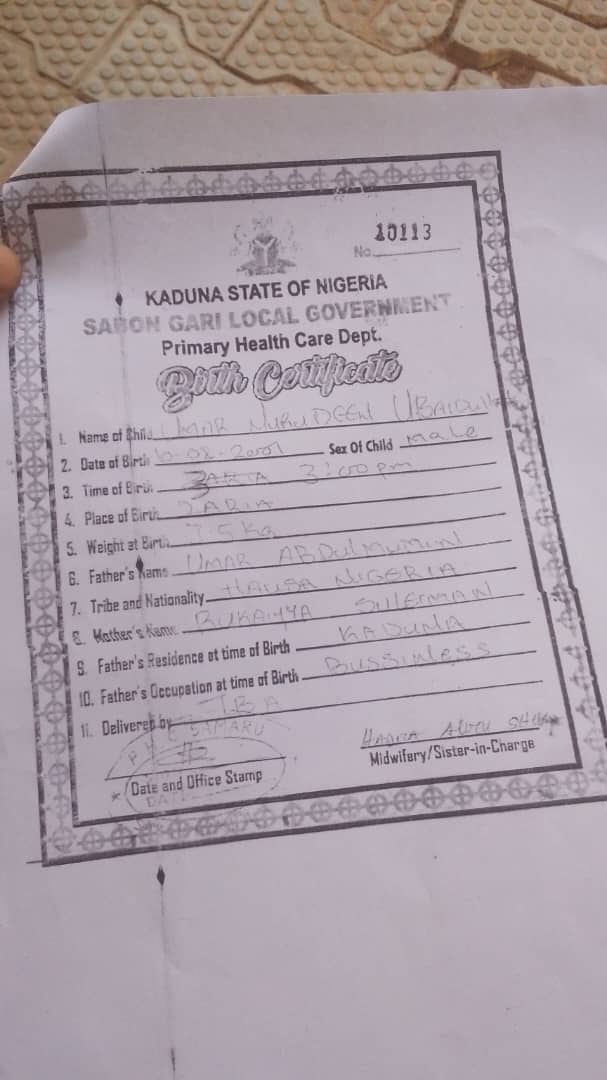 10113
No.
KADUNA STATE OF NIGERIA
SABON GARI LOCAL GOVERNMENT
Primary Health Care Dept.
Birth Certificate
1. Name of Child UMAR NURUDEEN
2. Date of Birth Sex Of Child male
3. Time of Birth ZARIA 3:00pm
4. Place of Birth ZARIA
5. Weight at Birth
6. Father's Name UMAR ABDULMUMIN
7. Tribe and Nationality HAUSA NIGERIA
8. Mother's Name RUKAIYYA SULEMAN
9. Father's Residence at time of Birth KADUNA
10. Father's Occupation at time of Birth BUSSINLESS
11. Delivered by
SAMARU
Midwifery/Sister-in-Charge
Date and Office Stamp